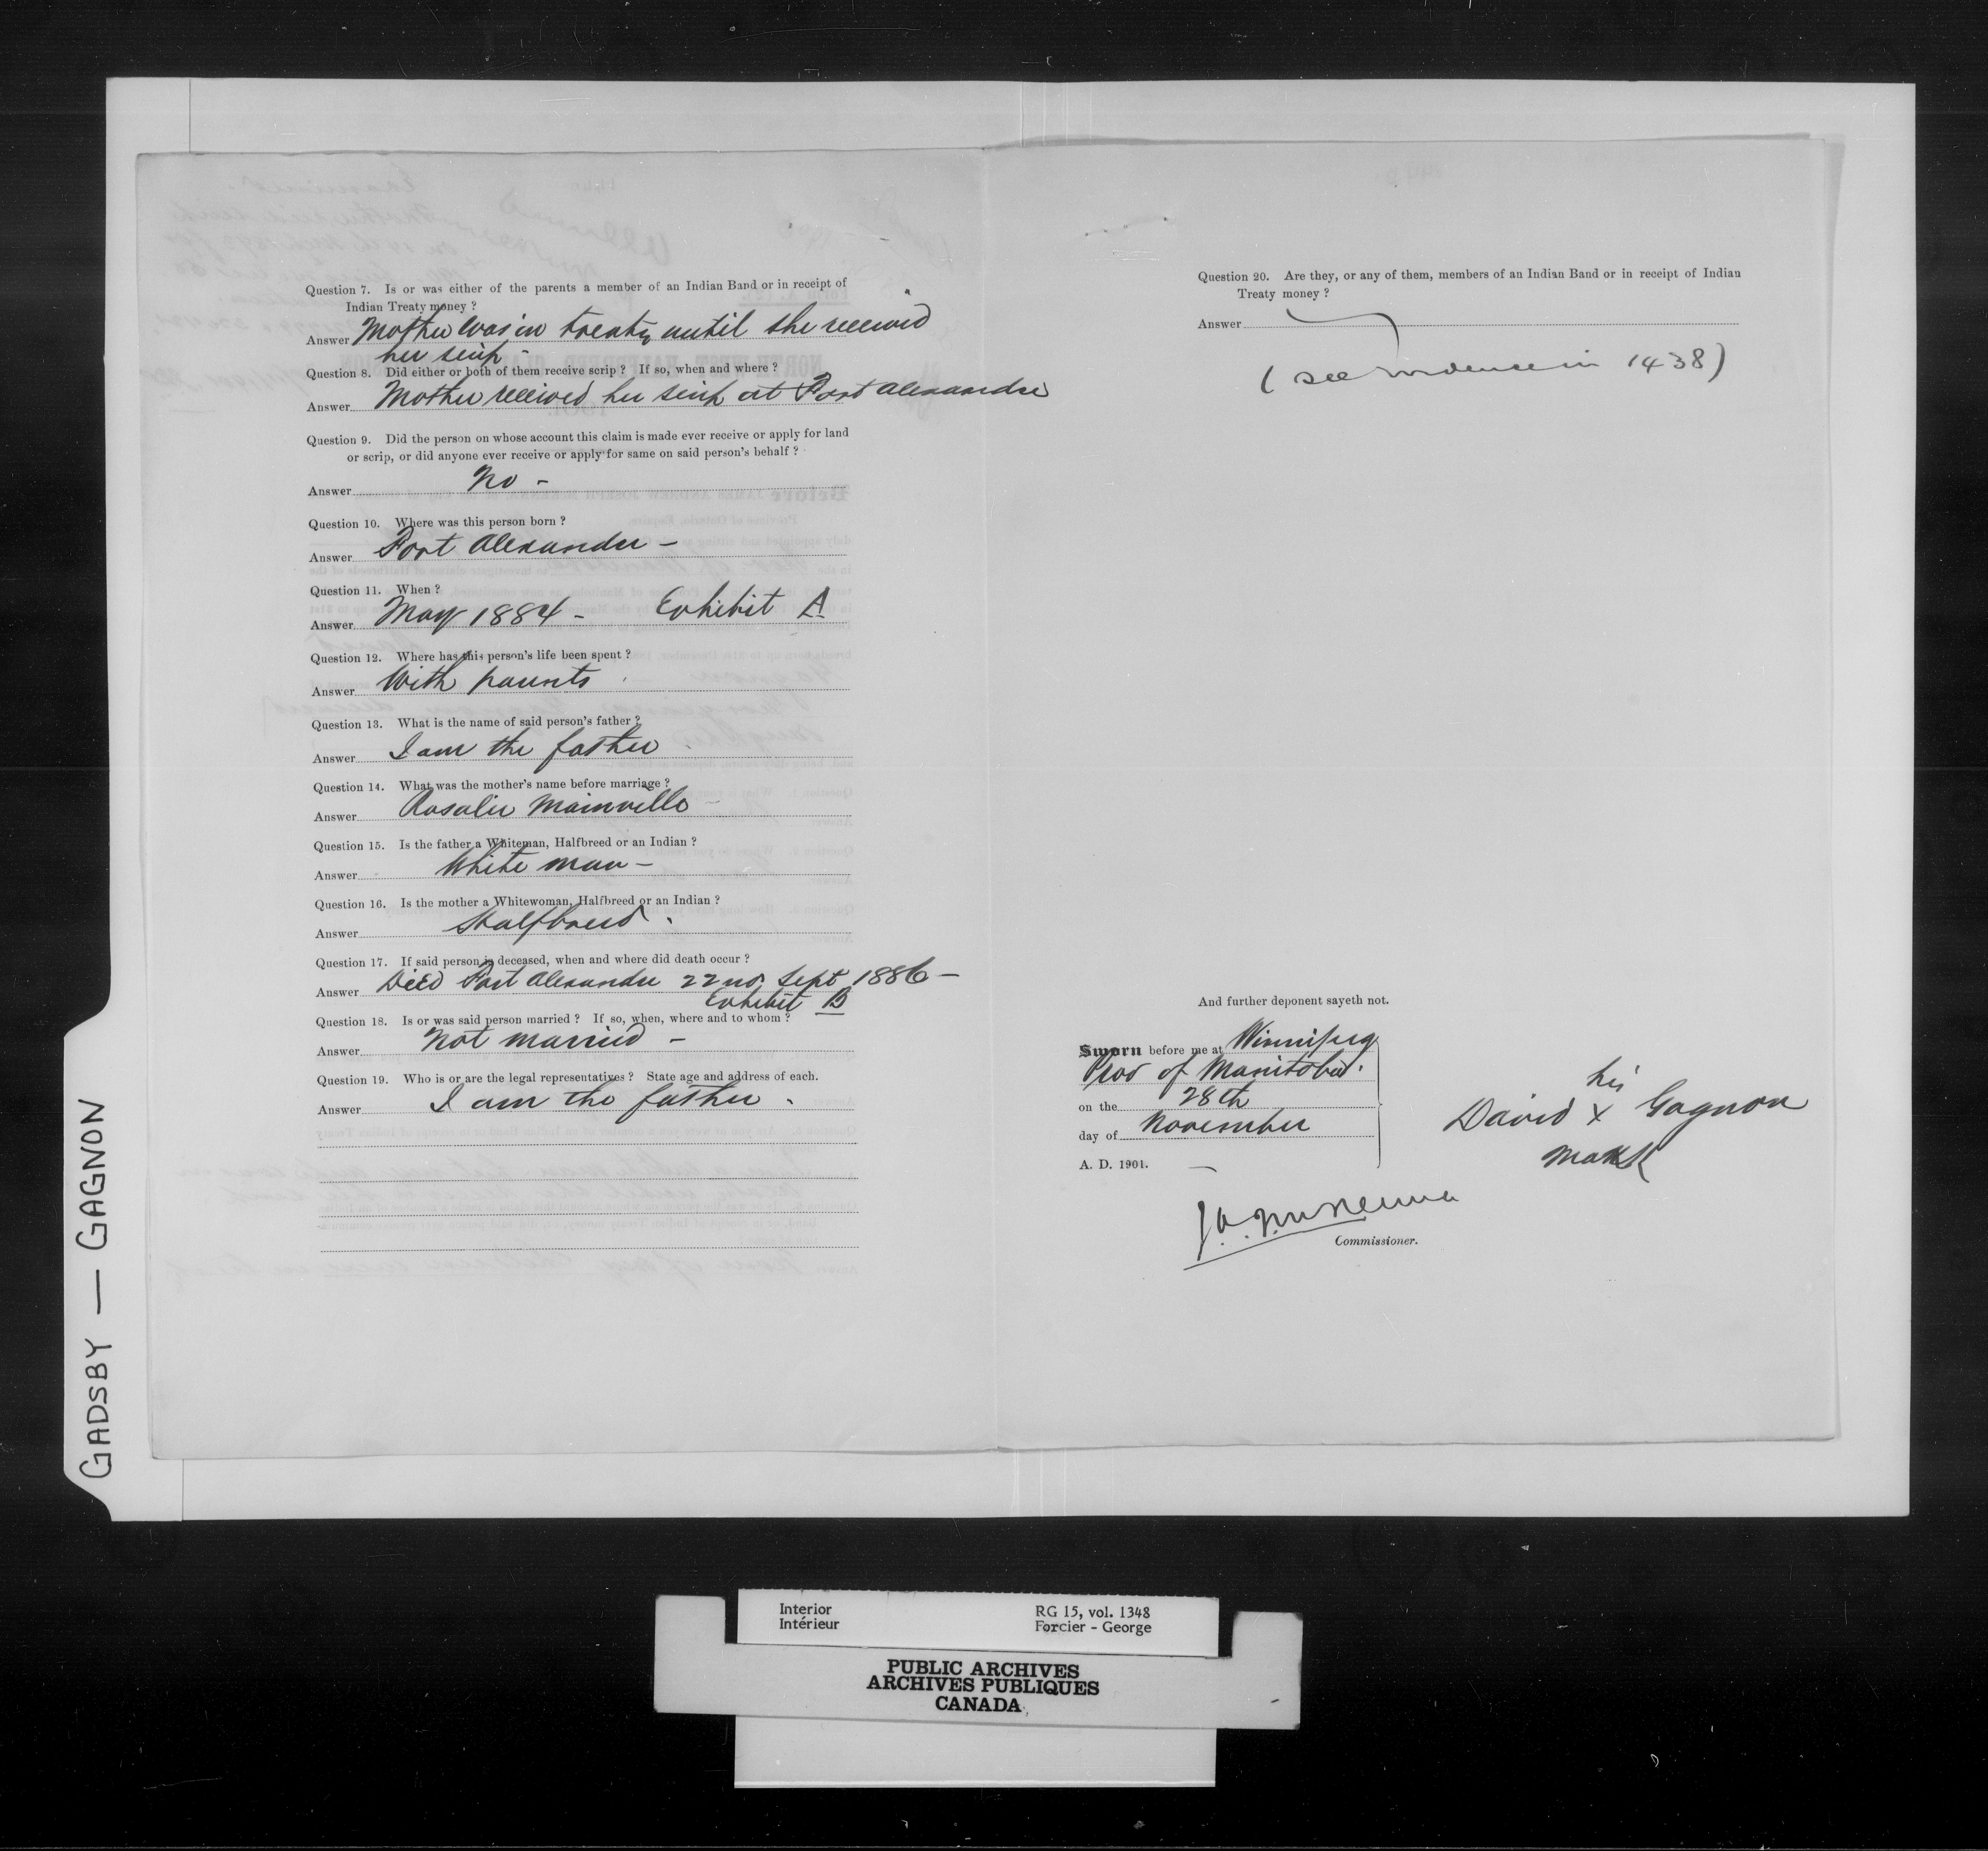 Question 7. Is or was either of the parents a member of an Indian Band or in receipt of
Indian Treaty money ?
Answer Mother was in treaty until she received
her scrip -
Question 8. Did either or both of them receive scrip ? If so, when and where ?
Answer Mother received her scrip at Fort Alexander
Question 9. Did the person on whose account this claim is made ever receive or apply for land
or scrip, or did anyone ever receive or apply for same on said person's behalf ?
Answer No -
Question 10. Where was this person born ?
Answer Fort Alexander -
Question 11. When ?
Answer May 1884 - Exhibit A
Question 12. Where has this person's life been spent ?
Answer With parents
Question 13. What is the name of said person's father ?
Answer I am the father
Question 14. What was the mother's name before marriage ?
Answer Rosalie Mainville -
Question 15. Is the father a Whiteman, Halfbreed or an Indian ?
Answer White man -
Question 16. Is the mother a Whitewoman, Halfbreed or an Indian ?
Answer Halfbreed .
Question 17. If said person is deceased, when and where did death occur ?
Answer Died Fort Alexander 22nd Sept 1886 -
Exhibit B
Question 18. Is or was said person married ? If so, when, where and to whom ?
Answer Not married -
Question 19. Who is or are the legal representatives ? State age and address of each.
Answer I am the father .
Question 20. Are they, or any of them, members of an Indian Band or in receipt of Indian
Treaty money ?
Answer
( see evidence in 1438 )
And further deponent sayeth not.
Sworn before me at Winnipeg
Prov of Manitoba.
on the 28th
day of November
A. D. 1901.
his
David x Gagnon
mark
J.A.J. McKenna
Commissioner.
GADSBY — GAGNON
Interior
Intérieur
RG 15, vol. 1348
Forcier - George
PUBLIC ARCHIVES
ARCHIVES PUBLIQUES
CANADA